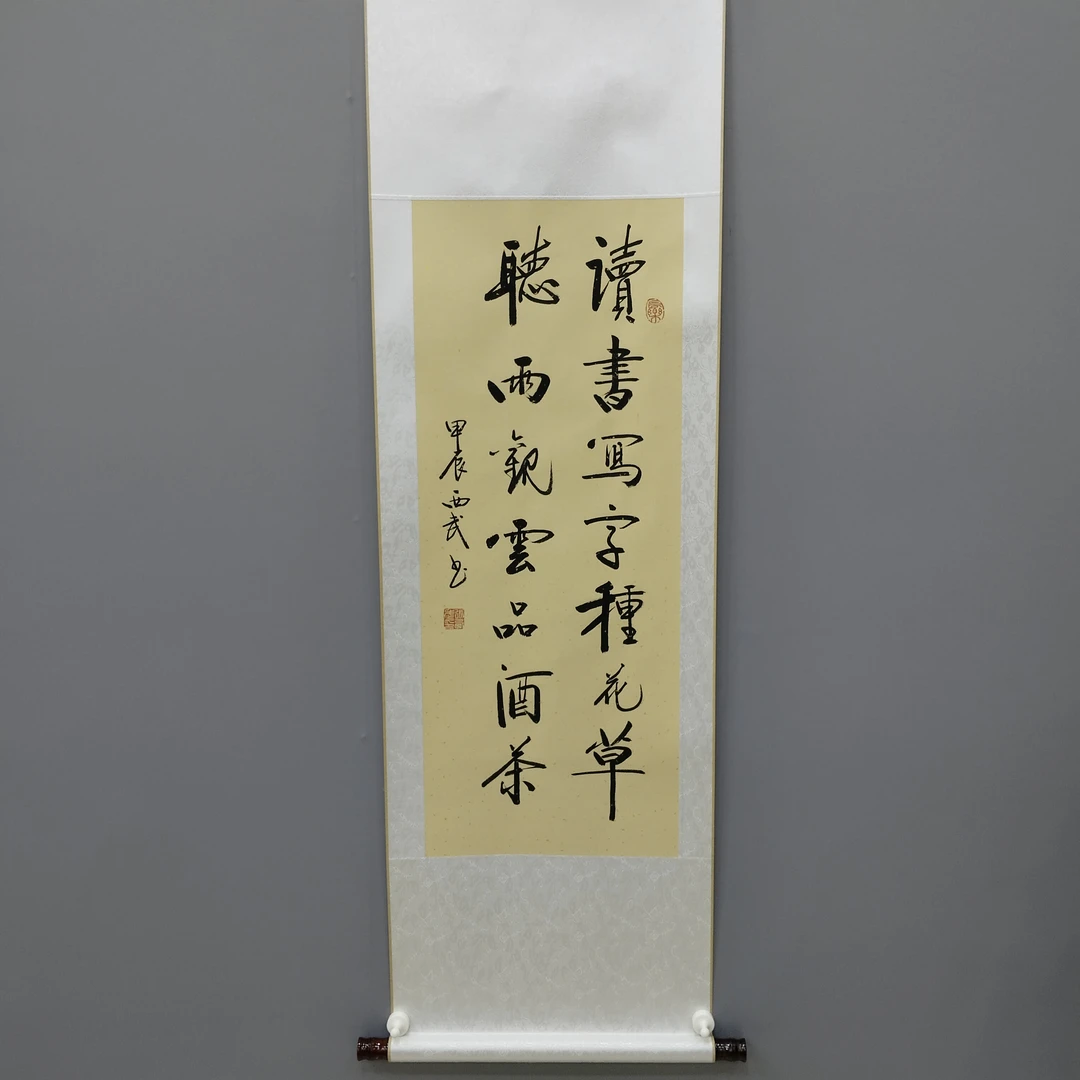 讀書寫字種花草
聽雨觀雲品酒茶
甲辰西武书